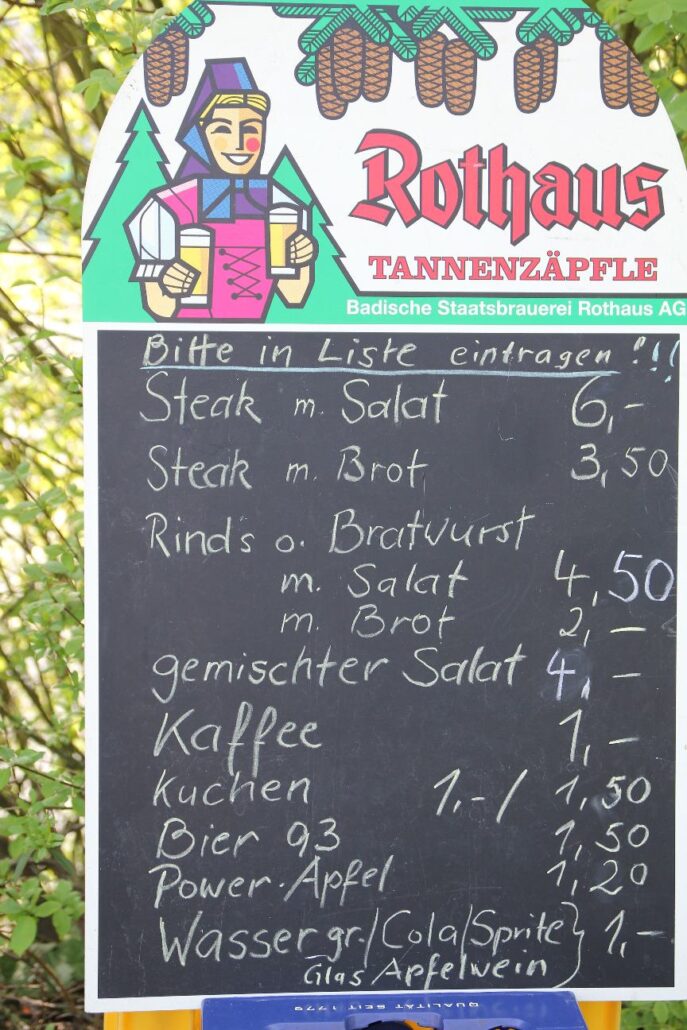 Rothaus
TANNENZÄPFLE
Badische Staatsbrauerei Rothaus AG
Bitte in Liste eintragen !!!
Steak m. Salat 6,-
Steak m. Brot 3,50
Rind's o. Bratwurst
m. Salat 4,50
m. Brot 2,-
gemischter Salat 4,-
Kaffee 1,-
Kuchen 1,-/ 1,50
Bier 93 1,50
Power.Apfel 1,20
Wasser gr./Cola/Sprite } 1,-
Glas Apfelwein
QUALITÄT SEIT 1779